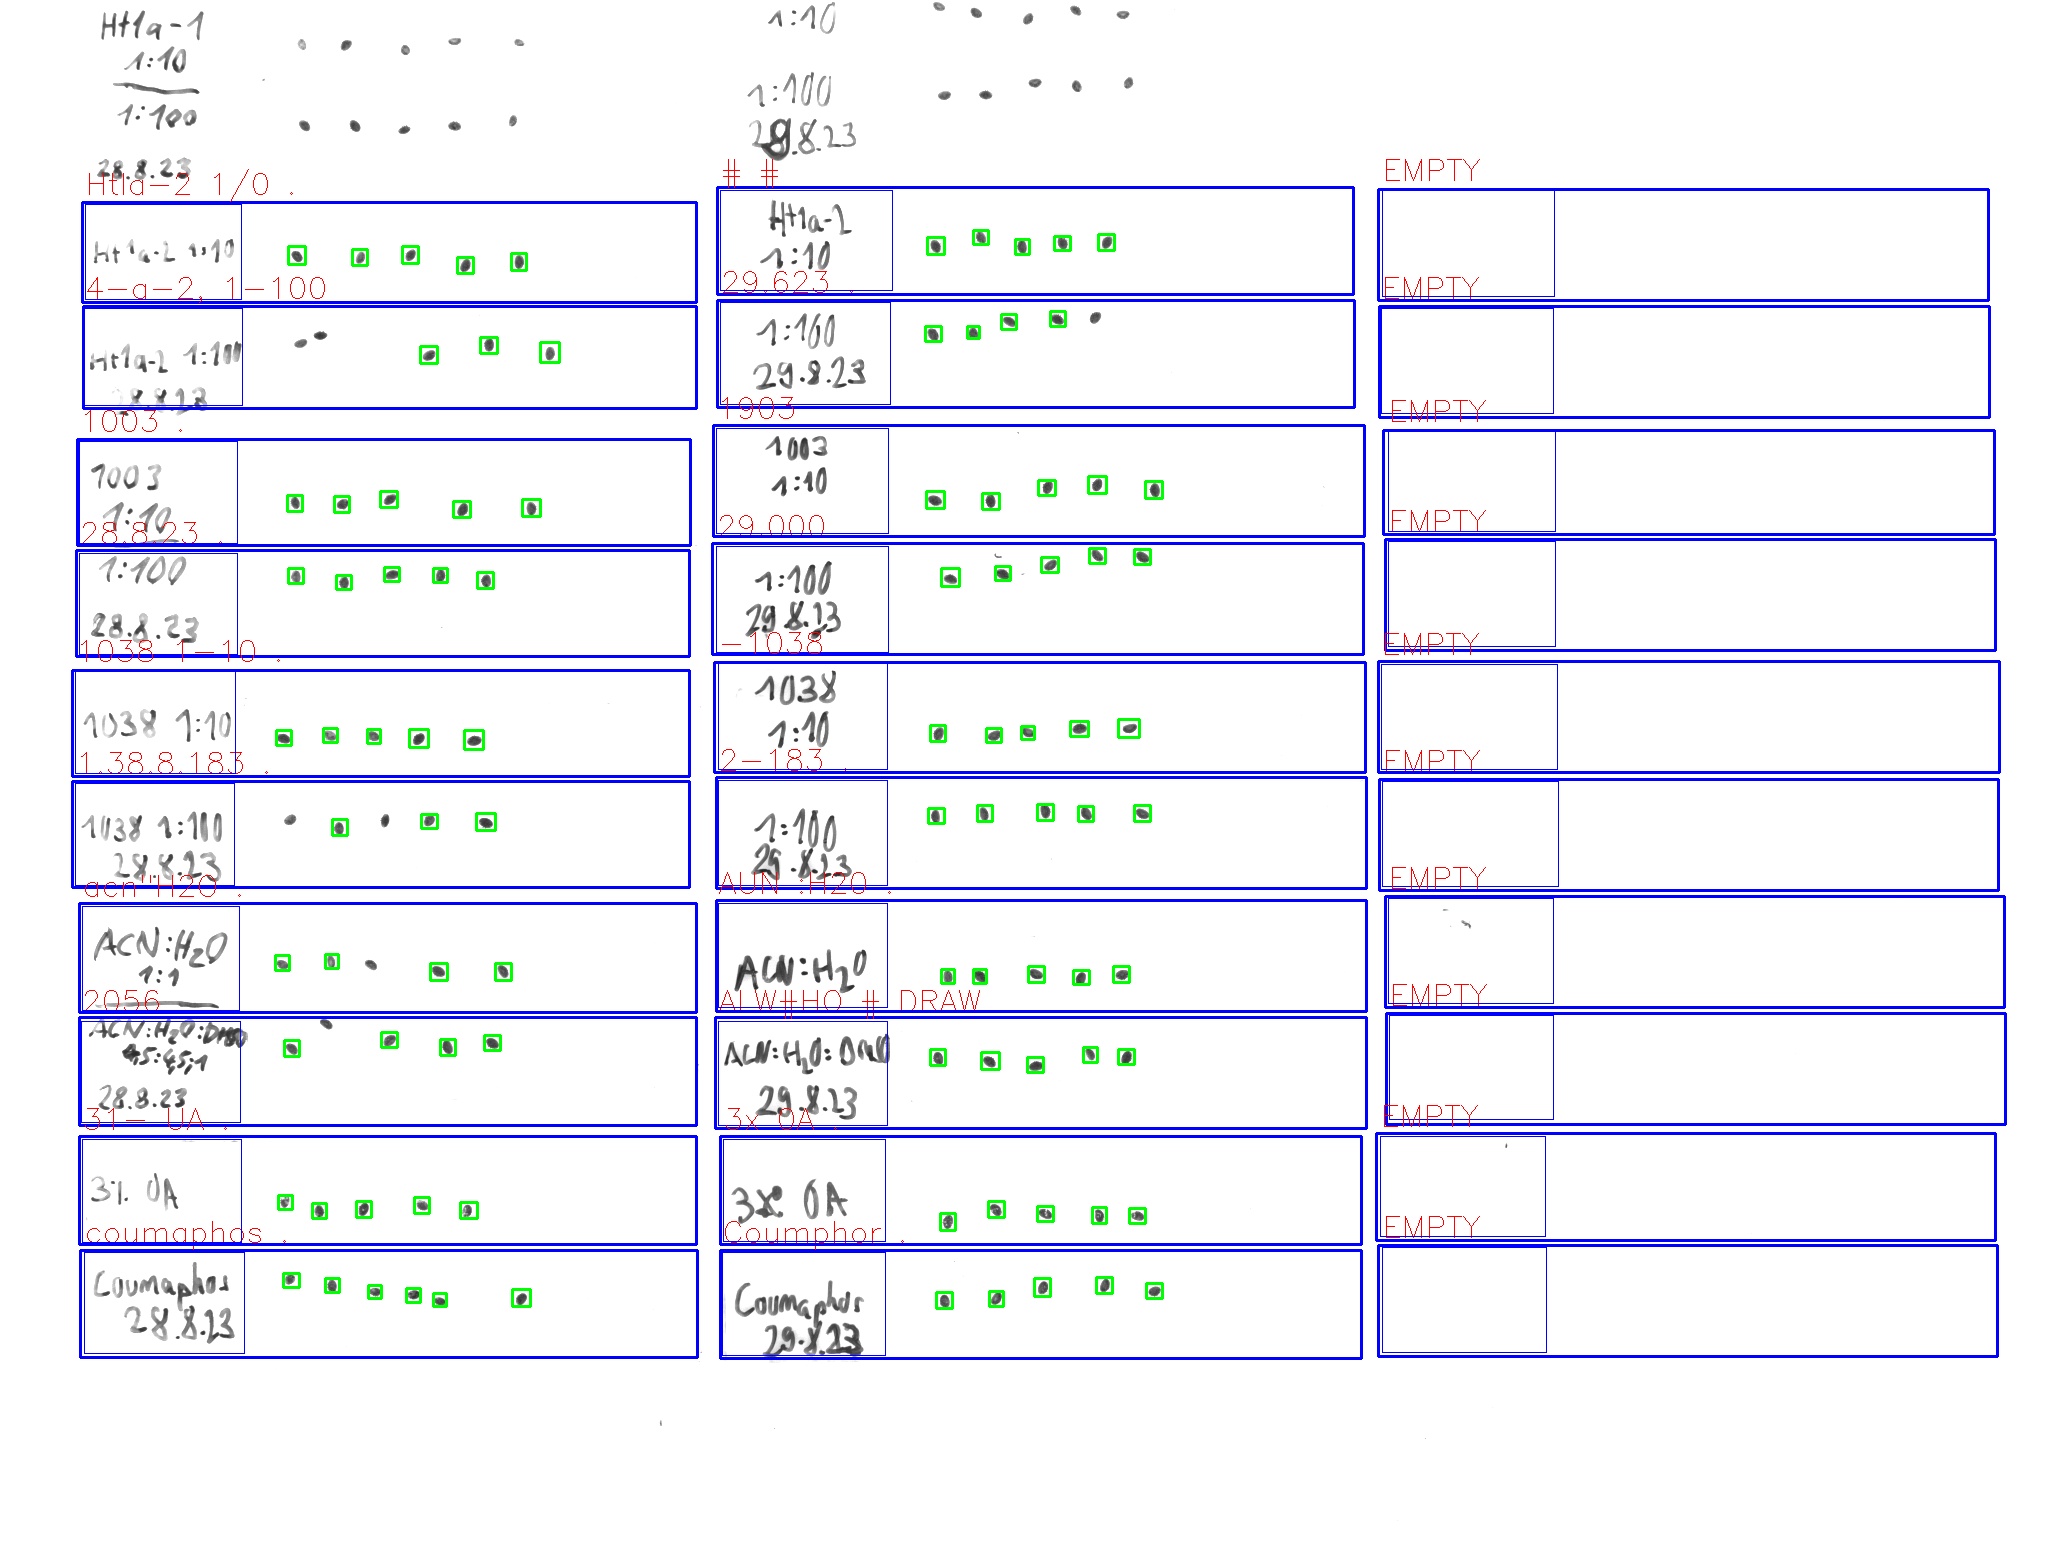 Ht1a-1
1:10
1:100
28.8.23
Ht1a-2 1/0 .
Ht1a-2 1:10
4-a-2, 1-100
Ht1a-2 1:100
28.8.23
1003 .
1003
1:10
28.8.23 .
1:100
28.8.23
1038 1-10 .
1038 1:10
1.38.8.183 .
1038 1:100
28.8.23
acn"H2O .
ACN:H2O
1:1
2056
ACN:H2O:DMSO
4,5:4,5:1
28.8.23
31- UA .
3% OA
coumaphos .
Coumaphos
28.8.23
1:10
1:100
28.8.23
# #
Ht1a-2
1:10
29.623 .
1:100
29.8.23
1903
1003
1:10
29.000
1:100
29.8.23
-1038
1038
1:10
2-183 .
1:100
29.8.23
AUN :H20 .
ACN:H2O
ALW#HO # DRAW
ACN:H2O:DMSO
29.8.23
3x 0A .
3% OA
Coumphor .
Coumaphos
29.8.23
EMPTY
EMPTY
EMPTY
EMPTY
EMPTY
EMPTY
EMPTY
EMPTY
EMPTY
EMPTY